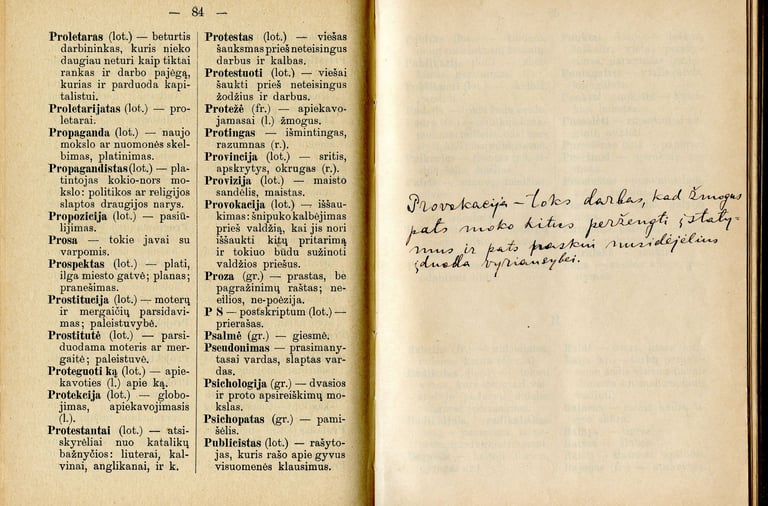 — 84 —
Proletaras (lot.) — beturtis
darbininkas, kuris nieko
daugiau neturi kaip tiktai
rankas ir darbo pajėgą,
kurias ir parduoda kapi-
talistui.
Proletarijatas (lot.) — pro-
letarai.
Propaganda (lot.) — naujo
mokslo ar nuomonės skel-
bimas, platinimas.
Propagandistas (lot.) — pla-
tintojas kokio-nors mo-
kslo: politikos ar religijos
slaptos draugijos narys.
Propozicija (lot.) — pasiū-
lijimas.
Prosa — tokie javai su
varpomis.
Prospektas (lot.) — plati,
ilga miesto gatvė; planas;
pranešimas.
Prostitucija (lot.) — moterų
ir mergaičių parsidavi-
mas; paleistuvybė.
Prostitutė (lot.) — parsi-
duodama moteris ar mer-
gaitė; paleistuvė.
Proteguoti ką (lot.) — apie-
kavoties (l.) apie ką.
Protekcija (lot.) — globo-
jimas, apiekavojimasis
(l.).
Protestantai (lot.) — atsi-
skyrėliai nuo katalikų
bažnyčios: liuterai, kal-
vinai, anglikanai, ir k.
Protestas (lot.) — viešas
šauksmas prieš neteisingus
darbus ir kalbas.
Protestuoti (lot.) — viešai
šaukti prieš neteisingus
žodžius ir darbus.
Protežė (fr.) — apiekavo-
jamasai (l.) žmogus.
Protingas — išmintingas,
razumnas (r.).
Provincija (lot.) — sritis,
apskrytys, okrugas (r.).
Provizija (lot.) — maisto
sandėlis, maistas.
Provokacija (lot.) — iššau-
kimas: šnipuko kalbėjimas
prieš valdžią, kai jis nori
iššaukti kitų pritarimą
ir tokiuo būdu sužinoti
valdžios priešus.
Proza (gr.) — prastas, be
pagražinimų raštas; ne-
eilios, ne-poėzija.
P S — postskriptum (lot.) —
prierašas.
Psalmė (gr.) — giesmė.
Pseudonimas — prasimany-
tasai vardas, slaptas var-
das.
Psichologija (gr.) — dvasios
ir proto apsireiškimų mo-
kslas.
Psichopatas (gr.) — pami-
šėlis.
Publicistas (lot.) — rašyto-
jas, kuris rašo apie gyvus
visuomenės klausimus.
Provokacija – toks darbas, kad žmogus
pats moko kitus peržengti įstaty-
mus ir pats paskui nusidėjėlius
įduoda vyriausybei.